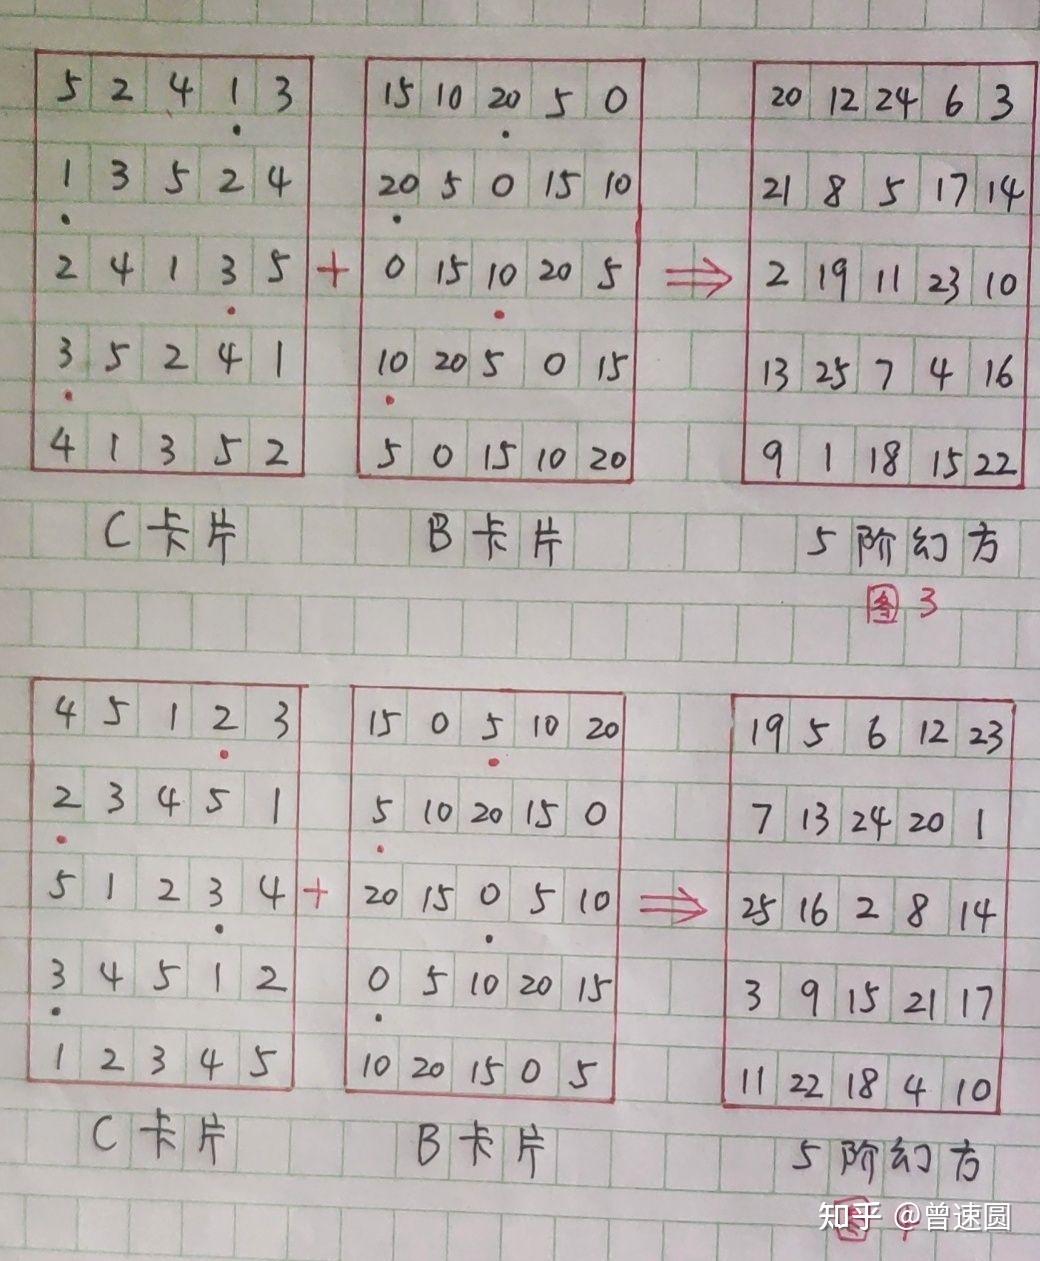 5 2 4 1 3 15 10 20 5 0 20 12 24 6 3
1 3 5 2 4 20 5 0 15 10 21 8 5 17 14
2 4 1 3 5 + 0 15 10 20 5 ⇒ 2 19 11 23 10
3 5 2 4 1 10 20 5 0 15 13 25 7 4 16
4 1 3 5 2 5 0 15 10 20 9 1 18 15 22
C卡片 B卡片 5阶幻方
图3
4 5 1 2 3 15 0 5 10 20 19 5 6 12 23
2 3 4 5 1 5 10 20 15 0 7 13 24 20 1
5 1 2 3 4 + 20 15 0 5 10 ⇒ 25 16 2 8 14
3 4 5 1 2 0 5 10 20 15 3 9 15 21 17
1 2 3 4 5 10 20 15 0 5 11 22 18 4 10
C卡片 B卡片 5阶幻方
图
知乎 @曾速圆